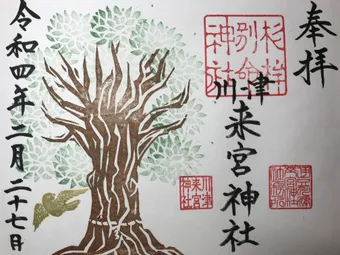 奉拝
杉桙
別命
神社
川津
来宮神社
令和四年二月二十七日